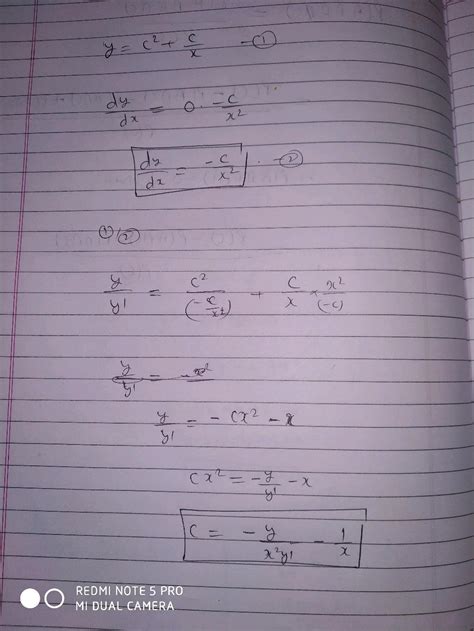 y = c² + c/x — ①
dy/dx = 0 · -c/x²
dy/dx = -c/x² · — ②
①/②
y/y' = c²/(-c/x²) + c/x × x²/(-c)
y/y' = - x²
y/y' = - cx² - x
cx² = -y/y' - x
c = - y/x²y' - 1/x
REDMI NOTE 5 PRO
MI DUAL CAMERA